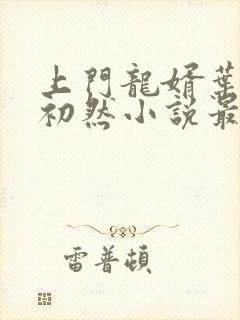 上門龍婿葉
初然小說最
雷普頓